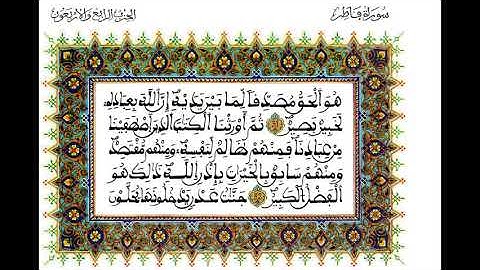 سورة فاطر
الحزب الرابع والأربعون
هُوَ الْحَقُّ مُصَدِّقًا لِّمَا بَيْنَ يَدَيْهِ إِنَّ اللَّهَ بِعِبَادِهِ
لَخَبِيرٌ بَصِيرٌ ثُمَّ أَوْرَثْنَا الْكِتَابَ الَّذِينَ اصْطَفَيْنَا
مِنْ عِبَادِنَا فَمِنْهُمْ ظَالِمٌ لِّنَفْسِهِ وَمِنْهُم مُّقْتَصِدٌ
وَمِنْهُمْ سَابِقٌ بِالْخَيْرَاتِ بِإِذْنِ اللَّهِ ذَلِكَ هُوَ
الْفَضْلُ الْكَبِيرُ جَنَّاتُ عَدْنٍ يَدْخُلُونَهَا يُحَلَّوْنَ